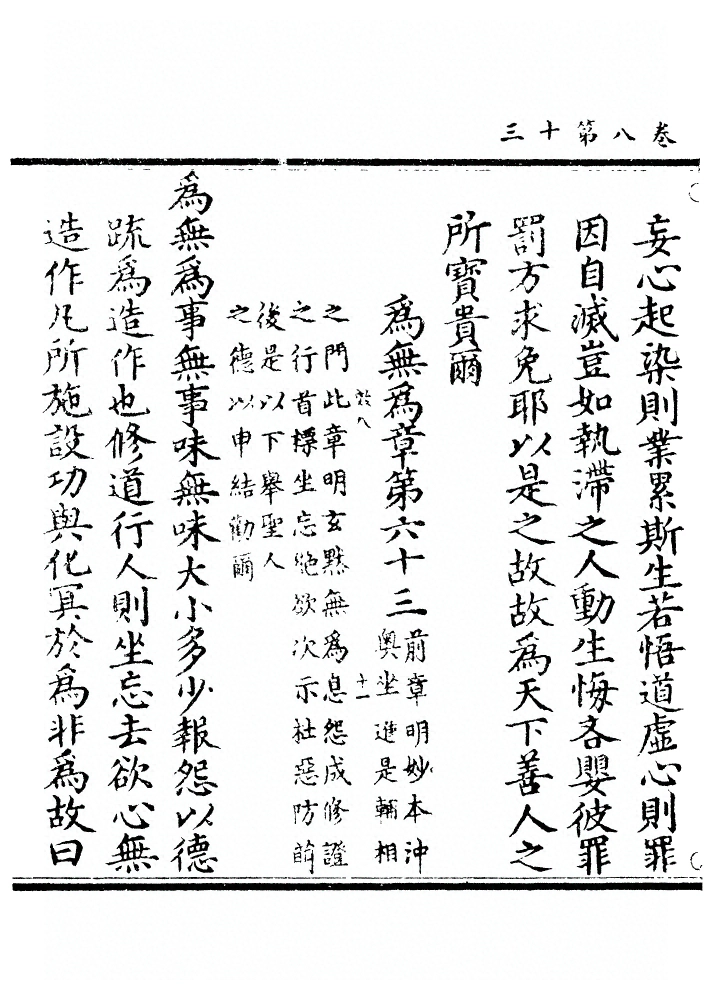 卷八第十三
妄心起染則業累斯生若悟道虛心則罪
因自滅豈如執滯之人動生悔吝嬰彼罪
罰方求免耶以是之故故為天下善人之
所寶貴爾
為無為章第六十三
前章明妙本沖
奧坐進是輔相
八 十一
之門此章明玄黙無為息怨成修證
之行首標坐忘絶欲次示杜惡防萌
後是以下舉聖人
之德以申結勸爾
為無為事無事味無味大小多少報怨以德
疏為造作也修道行人則坐忘去欲心無
造作凡所施設功與化冥於為非為故曰